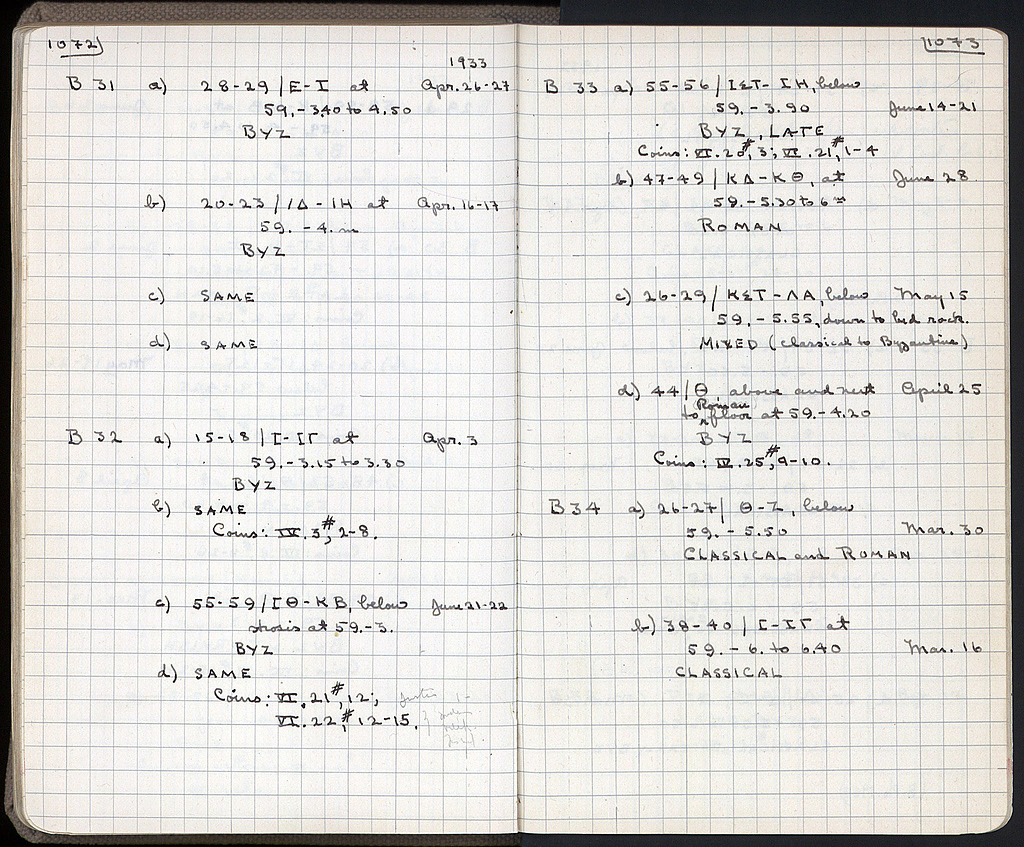 1072
1933
B 31 a) 28-29/E-I at Apr. 26-27
59.-3.40 to 4.50
BYZ
b) 20-23/ΙΔ-ΙΗ at Apr. 16-17
59. -4. m
BYZ
c) SAME
d) SAME
B 32 a) 15-18/I-IΓ at Apr. 3
59.-3.15 to 3.30
BYZ
b) SAME
Coins: IV. 3, # 2-8.
c) 55-59/ΙΘ-ΚΒ, below June 21-22
strosis at 59.-3.
BYZ
d) SAME
Coins: VI. 21, # 12;
VI. 22, # 12-15.
1073
B 33 a) 55-56/ΙΣΤ-ΙΗ, below
59. -3.90 June 14-21
BYZ, LATE
Coins: VI. 20, # 3; VI. 21, # 1-4
b) 47-49/ΚΔ-ΚΘ, at June 28
59. -5.30 to 6 m
ROMAN
c) 26-29/ΚΣΤ-ΛΑ, below May 15
59. -5.55, down to bed rock.
MIXED (Classical to Byzantine)
d) 44/Θ above and next April 25
to Roman floor at 59.-4.20
BYZ
Coins: IV. 25, # 9-10.
B 34 a) 26-27/Θ-Ζ, below
59. -5.50 Mar. 30
CLASSICAL and ROMAN
b) 38-40/I-IΓ at
59. -6. to 6.40 Mar. 16
CLASSICAL